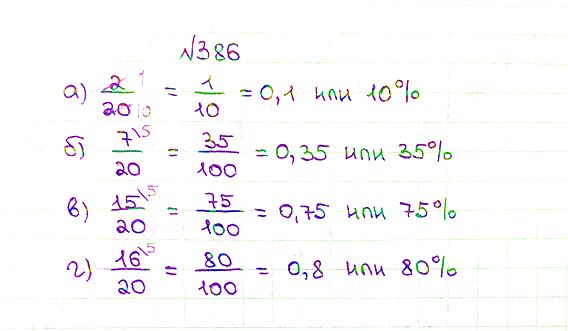 №386
а) 2/20 ¹ ₁₀ = 1/10 = 0,1 или 10%
б) 7\5/20 = 35/100 = 0,35 или 35%
в) 15\5/20 = 75/100 = 0,75 или 75%
г) 16\5/20 = 80/100 = 0,8 или 80%